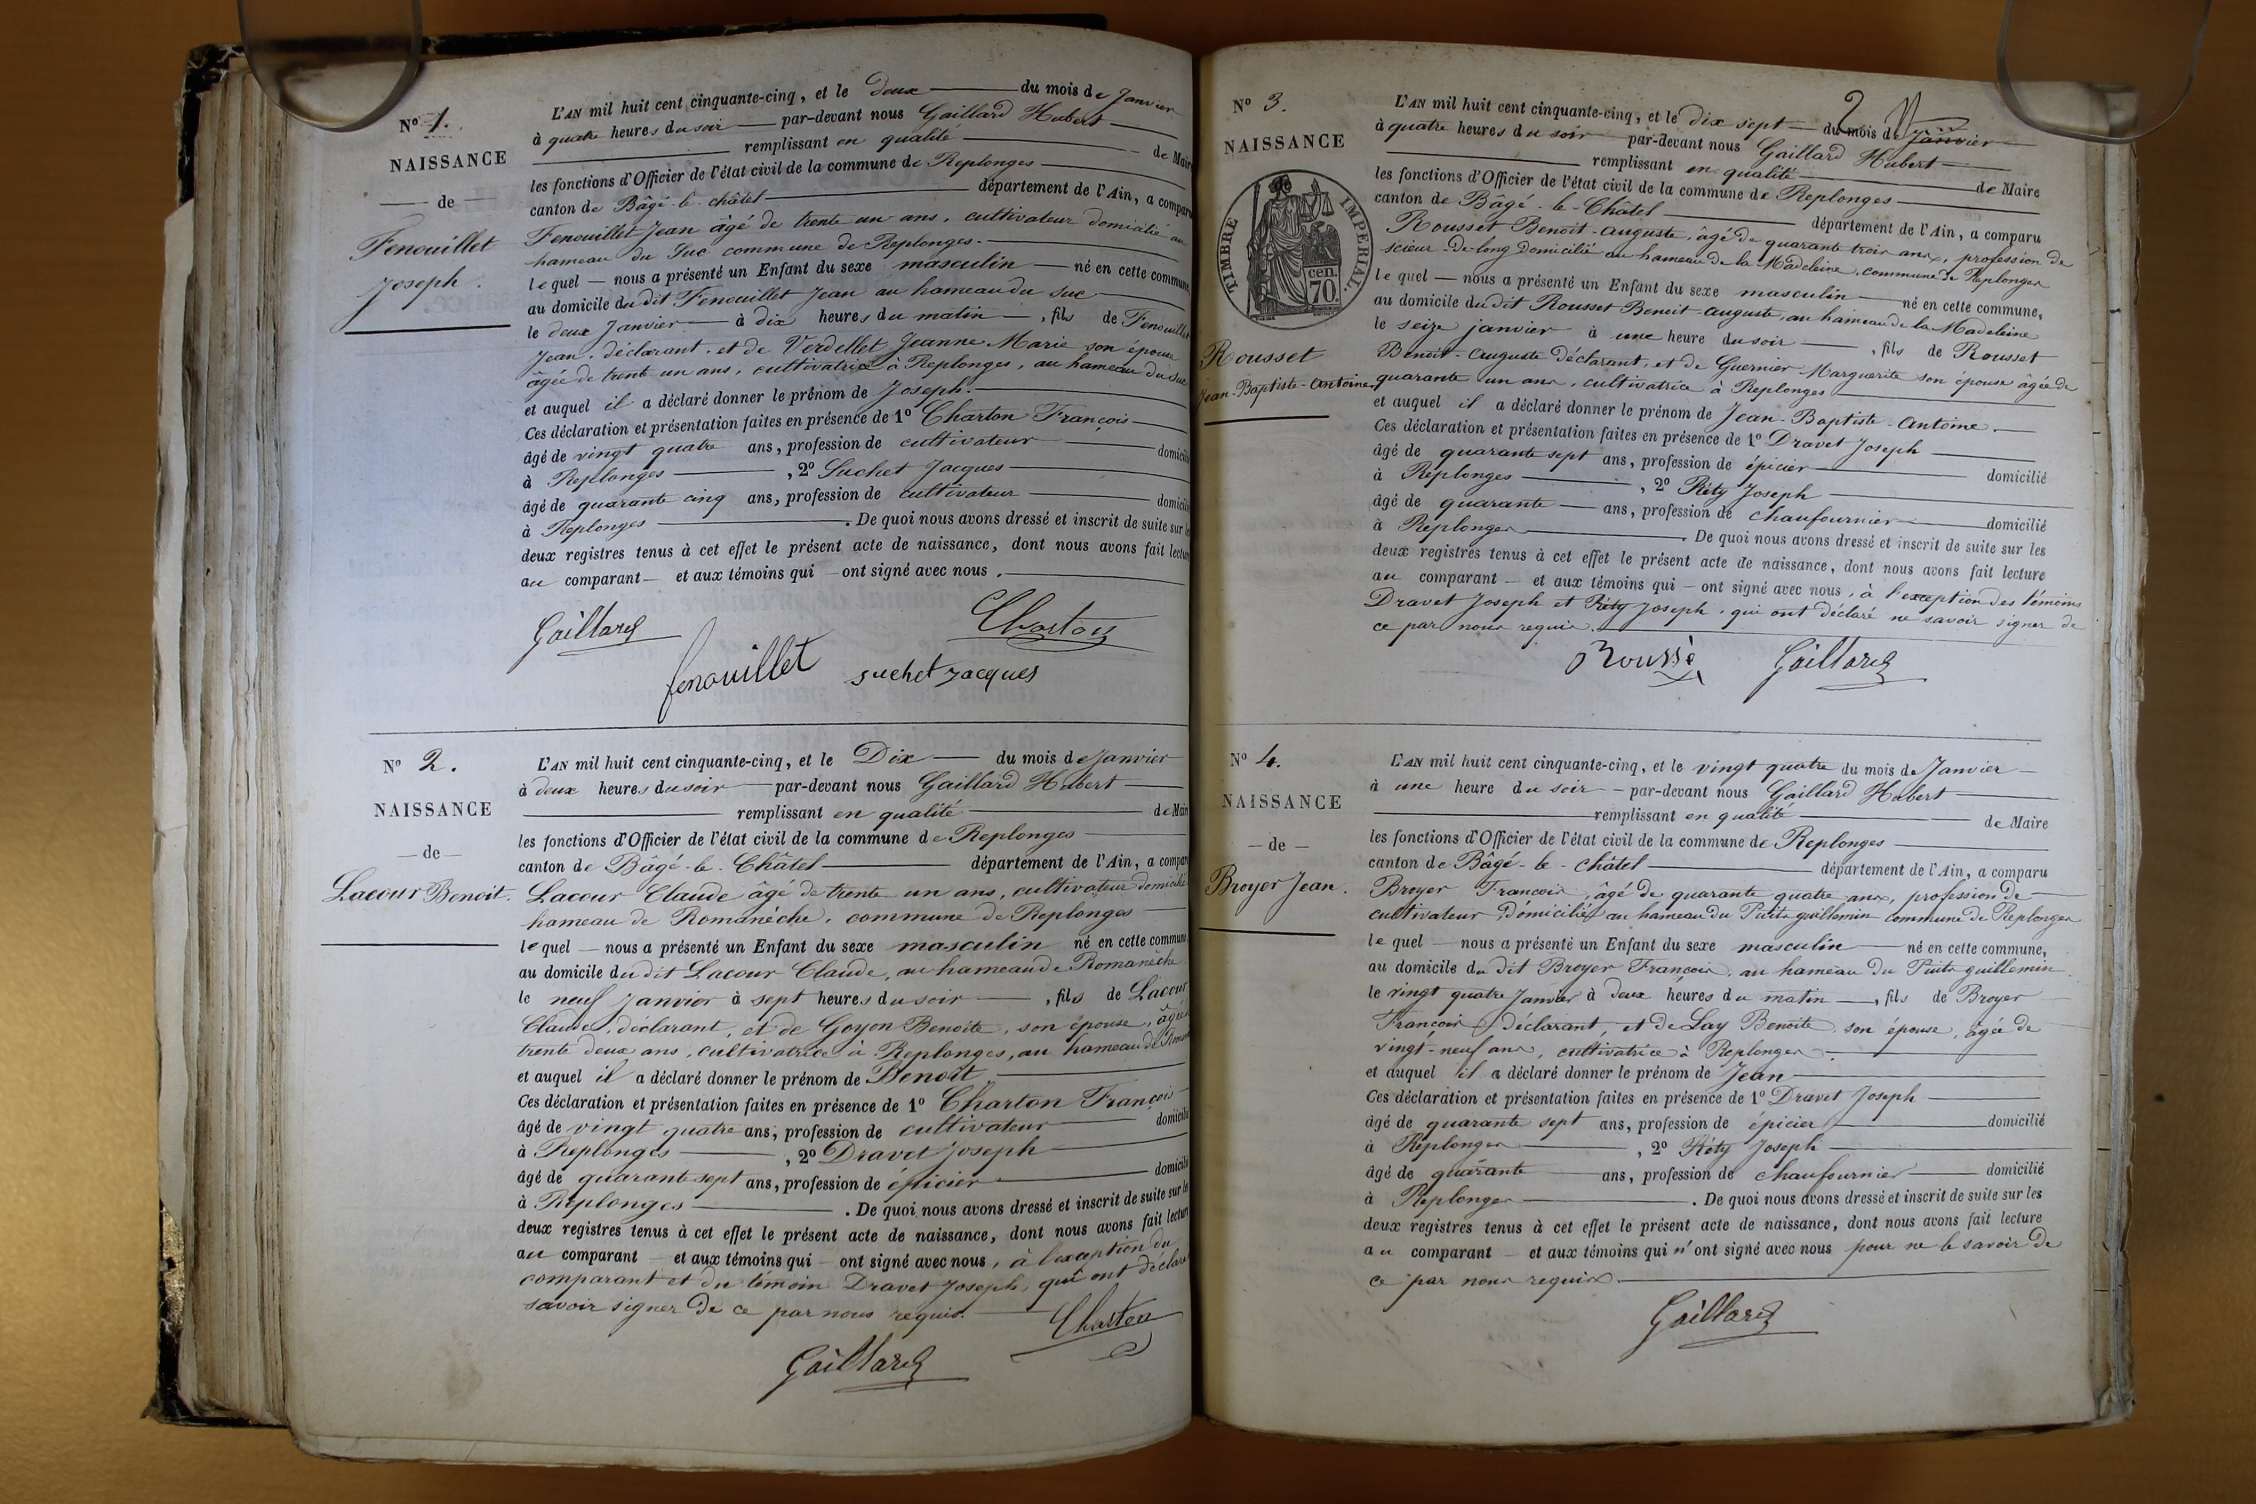 N° 1.
NAISSANCE
de
Fenouillet
Joseph.
L'AN mil huit cent cinquante-cinq, et le deux du mois de Janvier
à quatre heures du soir par-devant nous Gaillard Hubert
remplissant en qualité de Maire
les fonctions d'Officier de l'état civil de la commune de Replonges
canton de Bâgé-le-châtel département de l'Ain, a comparu
Fenouillet Jean âgé de trente un ans, cultivateur domicilié au
hameau du Suc commune de Replonges.
lequel nous a présenté un Enfant du sexe masculin né en cette commune
au domicile dudit Fenouillet Jean au hameau du Suc
le deux Janvier à dix heures du matin, fils de Fenouillet
Jean, déclarant, et de Verdellet Jeanne Marie son épouse
âgée de trente un ans, cultivatrice à Replonges, au hameau du Suc
et auquel il a déclaré donner le prénom de Joseph.
Ces déclaration et présentation faites en présence de 1° Charton François
âgé de vingt quatre ans, profession de cultivateur domicilié
à Replonges, 2° Suchet Jacques
âgé de quarante cinq ans, profession de cultivateur domicilié
à Replonges. De quoi nous avons dressé et inscrit de suite sur les
deux registres tenus à cet effet le présent acte de naissance, dont nous avons fait lecture
au comparant et aux témoins qui ont signé avec nous.
Gaillard Charton
fenouillet suchet jacques
N° 2.
NAISSANCE
de
Lacour Benoit.
L'AN mil huit cent cinquante-cinq, et le Dix du mois de Janvier
à deux heures du soir par-devant nous Gaillard Hubert
remplissant en qualité de Maire
les fonctions d'Officier de l'état civil de la commune de Replonges
canton de Bâgé-le-Châtel département de l'Ain, a comparu
Lacour Claude âgé de trente un ans, cultivateur domicilié
hameau de Romanèche, commune de Replonges
lequel nous a présenté un Enfant du sexe masculin né en cette commune
au domicile dudit Lacour Claude, au hameau de Romanèche
le neuf Janvier à sept heures du soir, fils de Lacour
Claude, déclarant, et de Goyon Benoite, son épouse, âgée
trente deux ans, cultivatrice à Replonges, au hameau de
et auquel il a déclaré donner le prénom de Benoit
Ces déclaration et présentation faites en présence de 1° Charton François
âgé de vingt quatre ans, profession de cultivateur domicilié
à Replonges, 2° Dravet Joseph
âgé de quarante sept ans, profession de épicier domicilié
à Replonges. De quoi nous avons dressé et inscrit de suite sur les
deux registres tenus à cet effet le présent acte de naissance, dont nous avons fait lecture
au comparant et aux témoins qui ont signé avec nous, à l'exception du
comparant et du témoin Dravet Joseph, qui ont déclaré
savoir signer de ce par nous requis.
Charton
Gaillard
2
N° 3.
NAISSANCE
TIMBRE IMPERIAL.
cen.
70.
Rousset
Jean-Baptiste-Antoine
L'AN mil huit cent cinquante-cinq, et le dix sept du mois de Janvier
à quatre heures du soir par-devant nous Gaillard Hubert
remplissant en qualité de Maire
les fonctions d'Officier de l'état civil de la commune de Replonges
canton de Bâgé-le-Châtel département de l'Ain, a comparu
Rousset Benoit-Auguste, âgé de quarante trois ans, profession de
scieur-de-long domicilié au hameau de la Madeleine, commune de Replonges
lequel nous a présenté un Enfant du sexe masculin né en cette commune,
au domicile dudit Rousset Benoit-Auguste, au hameau de la Madeleine
le seize janvier à une heure du soir, fils de Rousset
Benoit-Auguste déclarant, et de Guernier Marguerite son épouse âgée de
quarante un ans, cultivatrice à Replonges
et auquel il a déclaré donner le prénom de Jean-Baptiste-Antoine.
Ces déclaration et présentation faites en présence de 1° Dravet Joseph
âgé de quarante sept ans, profession de épicier domicilié
à Replonges, 2° Réty Joseph
âgé de quarante ans, profession de chaufournier domicilié
à Replonges. De quoi nous avons dressé et inscrit de suite sur les
deux registres tenus à cet effet le présent acte de naissance, dont nous avons fait lecture
au comparant et aux témoins qui ont signé avec nous, à l'exception des témoins
Dravet Joseph et Réty Joseph, qui ont déclaré ne savoir signer de
ce par nous requis.
Roussè Gaillard
N° 4.
NAISSANCE
de
Broyer Jean.
L'AN mil huit cent cinquante-cinq, et le vingt quatre du mois de Janvier
à une heure du soir par-devant nous Gaillard Hubert
remplissant en qualité de Maire
les fonctions d'Officier de l'état civil de la commune de Replonges
canton de Bâgé-le-châtel département de l'Ain, a comparu
Broyer François, âgé de quarante quatre ans, profession de
cultivateur Domicilié au hameau du Puits guillemin commune de Replonges
lequel nous a présenté un Enfant du sexe masculin né en cette commune,
au domicile du dit Broyer François, au hameau du Puits guillemin
le vingt quatre Janvier à deux heures du matin, fils de Broyer
François déclarant, et de Lay Benoite, son épouse, âgée de
vingt-neuf ans, cultivatrice à Replonges.
et auquel il a déclaré donner le prénom de Jean
Ces déclaration et présentation faites en présence de 1° Dravet Joseph
âgé de quarante sept ans, profession de épicier domicilié
à Replonges, 2° Réty Joseph
âgé de quarante ans, profession de chaufournier domicilié
à Replonges. De quoi nous avons dressé et inscrit de suite sur les
deux registres tenus à cet effet le présent acte de naissance, dont nous avons fait lecture
au comparant et aux témoins qui n'ont signé avec nous pour ne le savoir de
ce par nous requis.
Gaillard